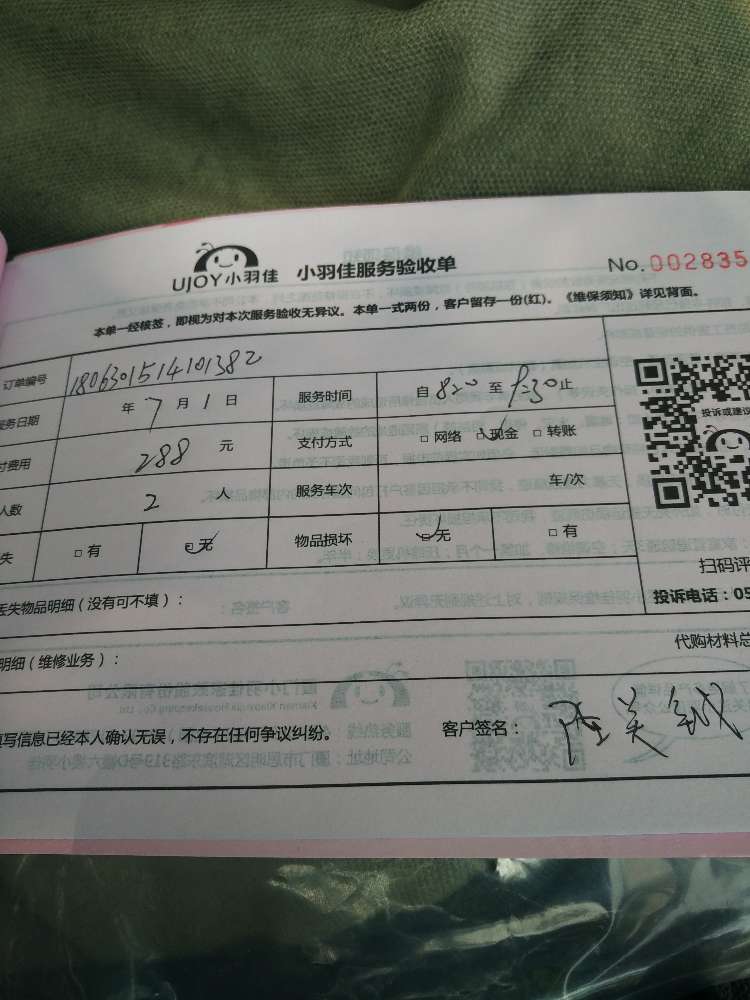 UJOY小羽佳 小羽佳服务验收单 No.002835
本单一经核签，即视为对本次服务验收无异议。本单一式两份，客户留存一份(红)。《维保须知》详见背面。
订单编号 1806301514101382
服务日期 年 7 月 1 日 服务时间 自 8:20 至 9:30 止
付费用 288 元 支付方式 □ 网络 □ 现金 □ 转账
人数 2 人 服务车次 车/次
失 □ 有 □ 无 物品损坏 □ 无 □ 有
投诉或建议
扫码评
丢失物品明细（没有可不填）： 投诉电话：05
明细（维修业务）： 代购材料总
填写信息已经本人确认无误，不存在任何争议纠纷。 客户签名：